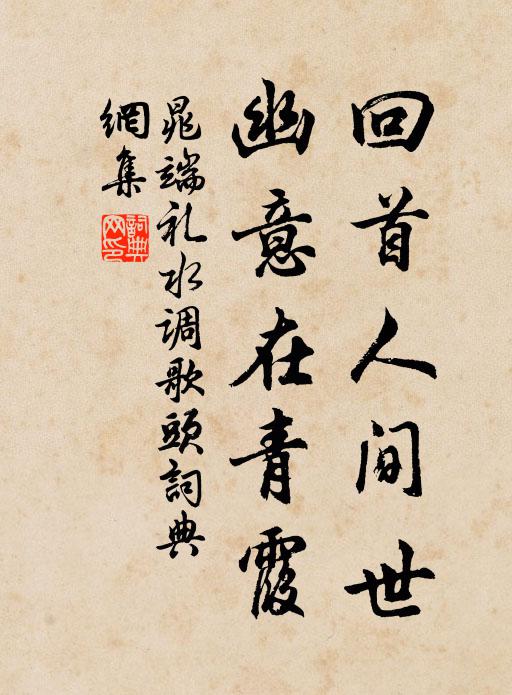 回首人间世
幽意在青霞
晁端礼水调歌頭詞典
網集
詞典网印